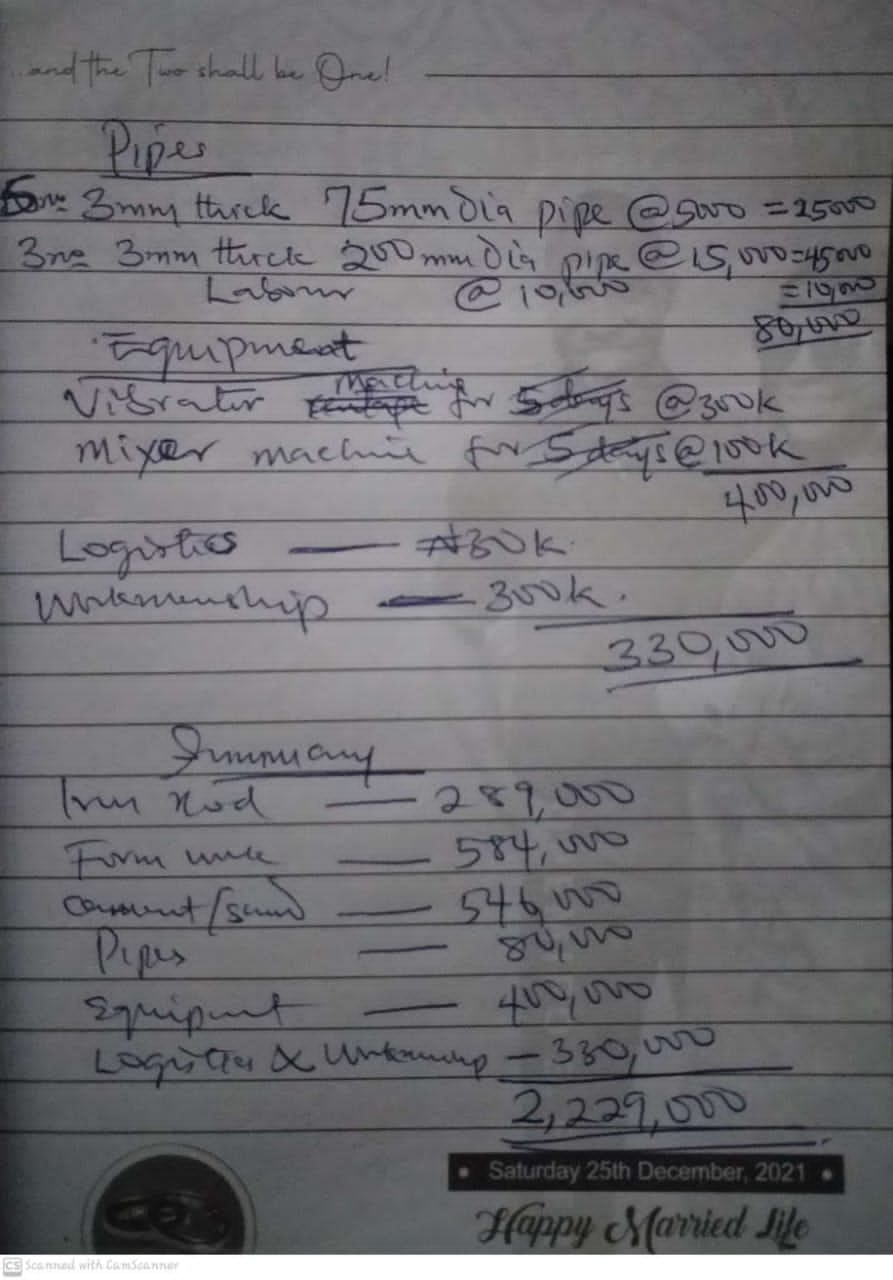 ...and the Two shall be One!
Pipes
5no 3mm thick 75mm dia pipe @5000 = 25000
3no 3mm thick 200mm dia pipe @15,000=45000
Labour @ 10,000 =10,000
80,000
Equipment
Vibrator Machine for 5 days @300k
Mixer machine for 5 days @100k
400,000
Logistics — ₦30k.
Workmenship — 300k.
330,000
Summary
Iron Rod — 289,000
Form work — 584,000
Cement/sand — 546,000
Pipes — 80,000
Equipment — 400,000
Logistics & Workmenship — 330,000
2,229,000
• Saturday 25th December, 2021 •
Happy Married Life
CS Scanned with CamScanner